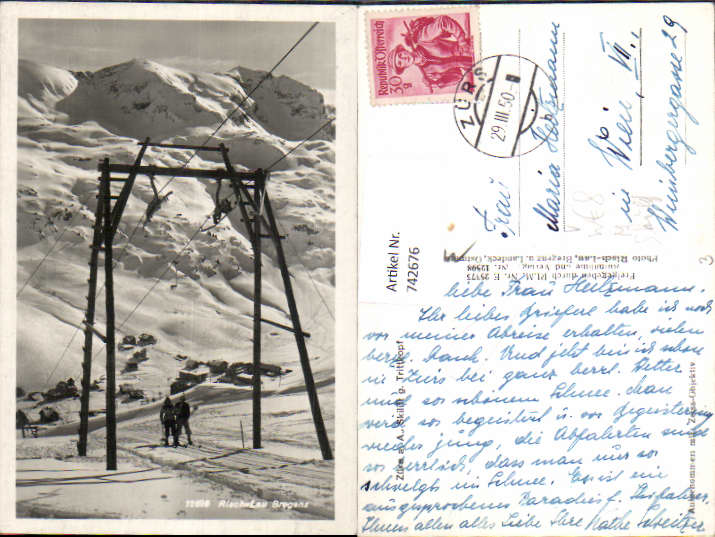 12698 Risch=Lau Bregenz
Republik Österreich
30 g
ZÜRS
29.III.50-8
Frau
Maria Hetzmann
in Wien, VII.
Weinbergergasse 29
Artikel Nr.
742676
Freigegeben durch
Photo Risch-Lau, Bregenz u. Landeck,
Zürs a. A., Skilift g. Trittkopf
Aufgenommen mit Zeiss-Objektiv
liebe Frau Hetzmann.
Ihr liebes Brieferl habe ich noch
vor meiner Abreise erhalten, vielen
herzl. Dank. Und jetzt bin ich schon
in Zürs bei ganz herrl. Wetter
und so schönem Schnee. Man
wird so begeistert u. vor Begeisterung
wieder jung, die Abfahrten sind
so herrlich, dass man nur so
schwelgt im Schnee. Es ist ein
ausgesprochenes Paradies f. Skifahrer.
Ihnen allen alles Liebe Ihre Käthe